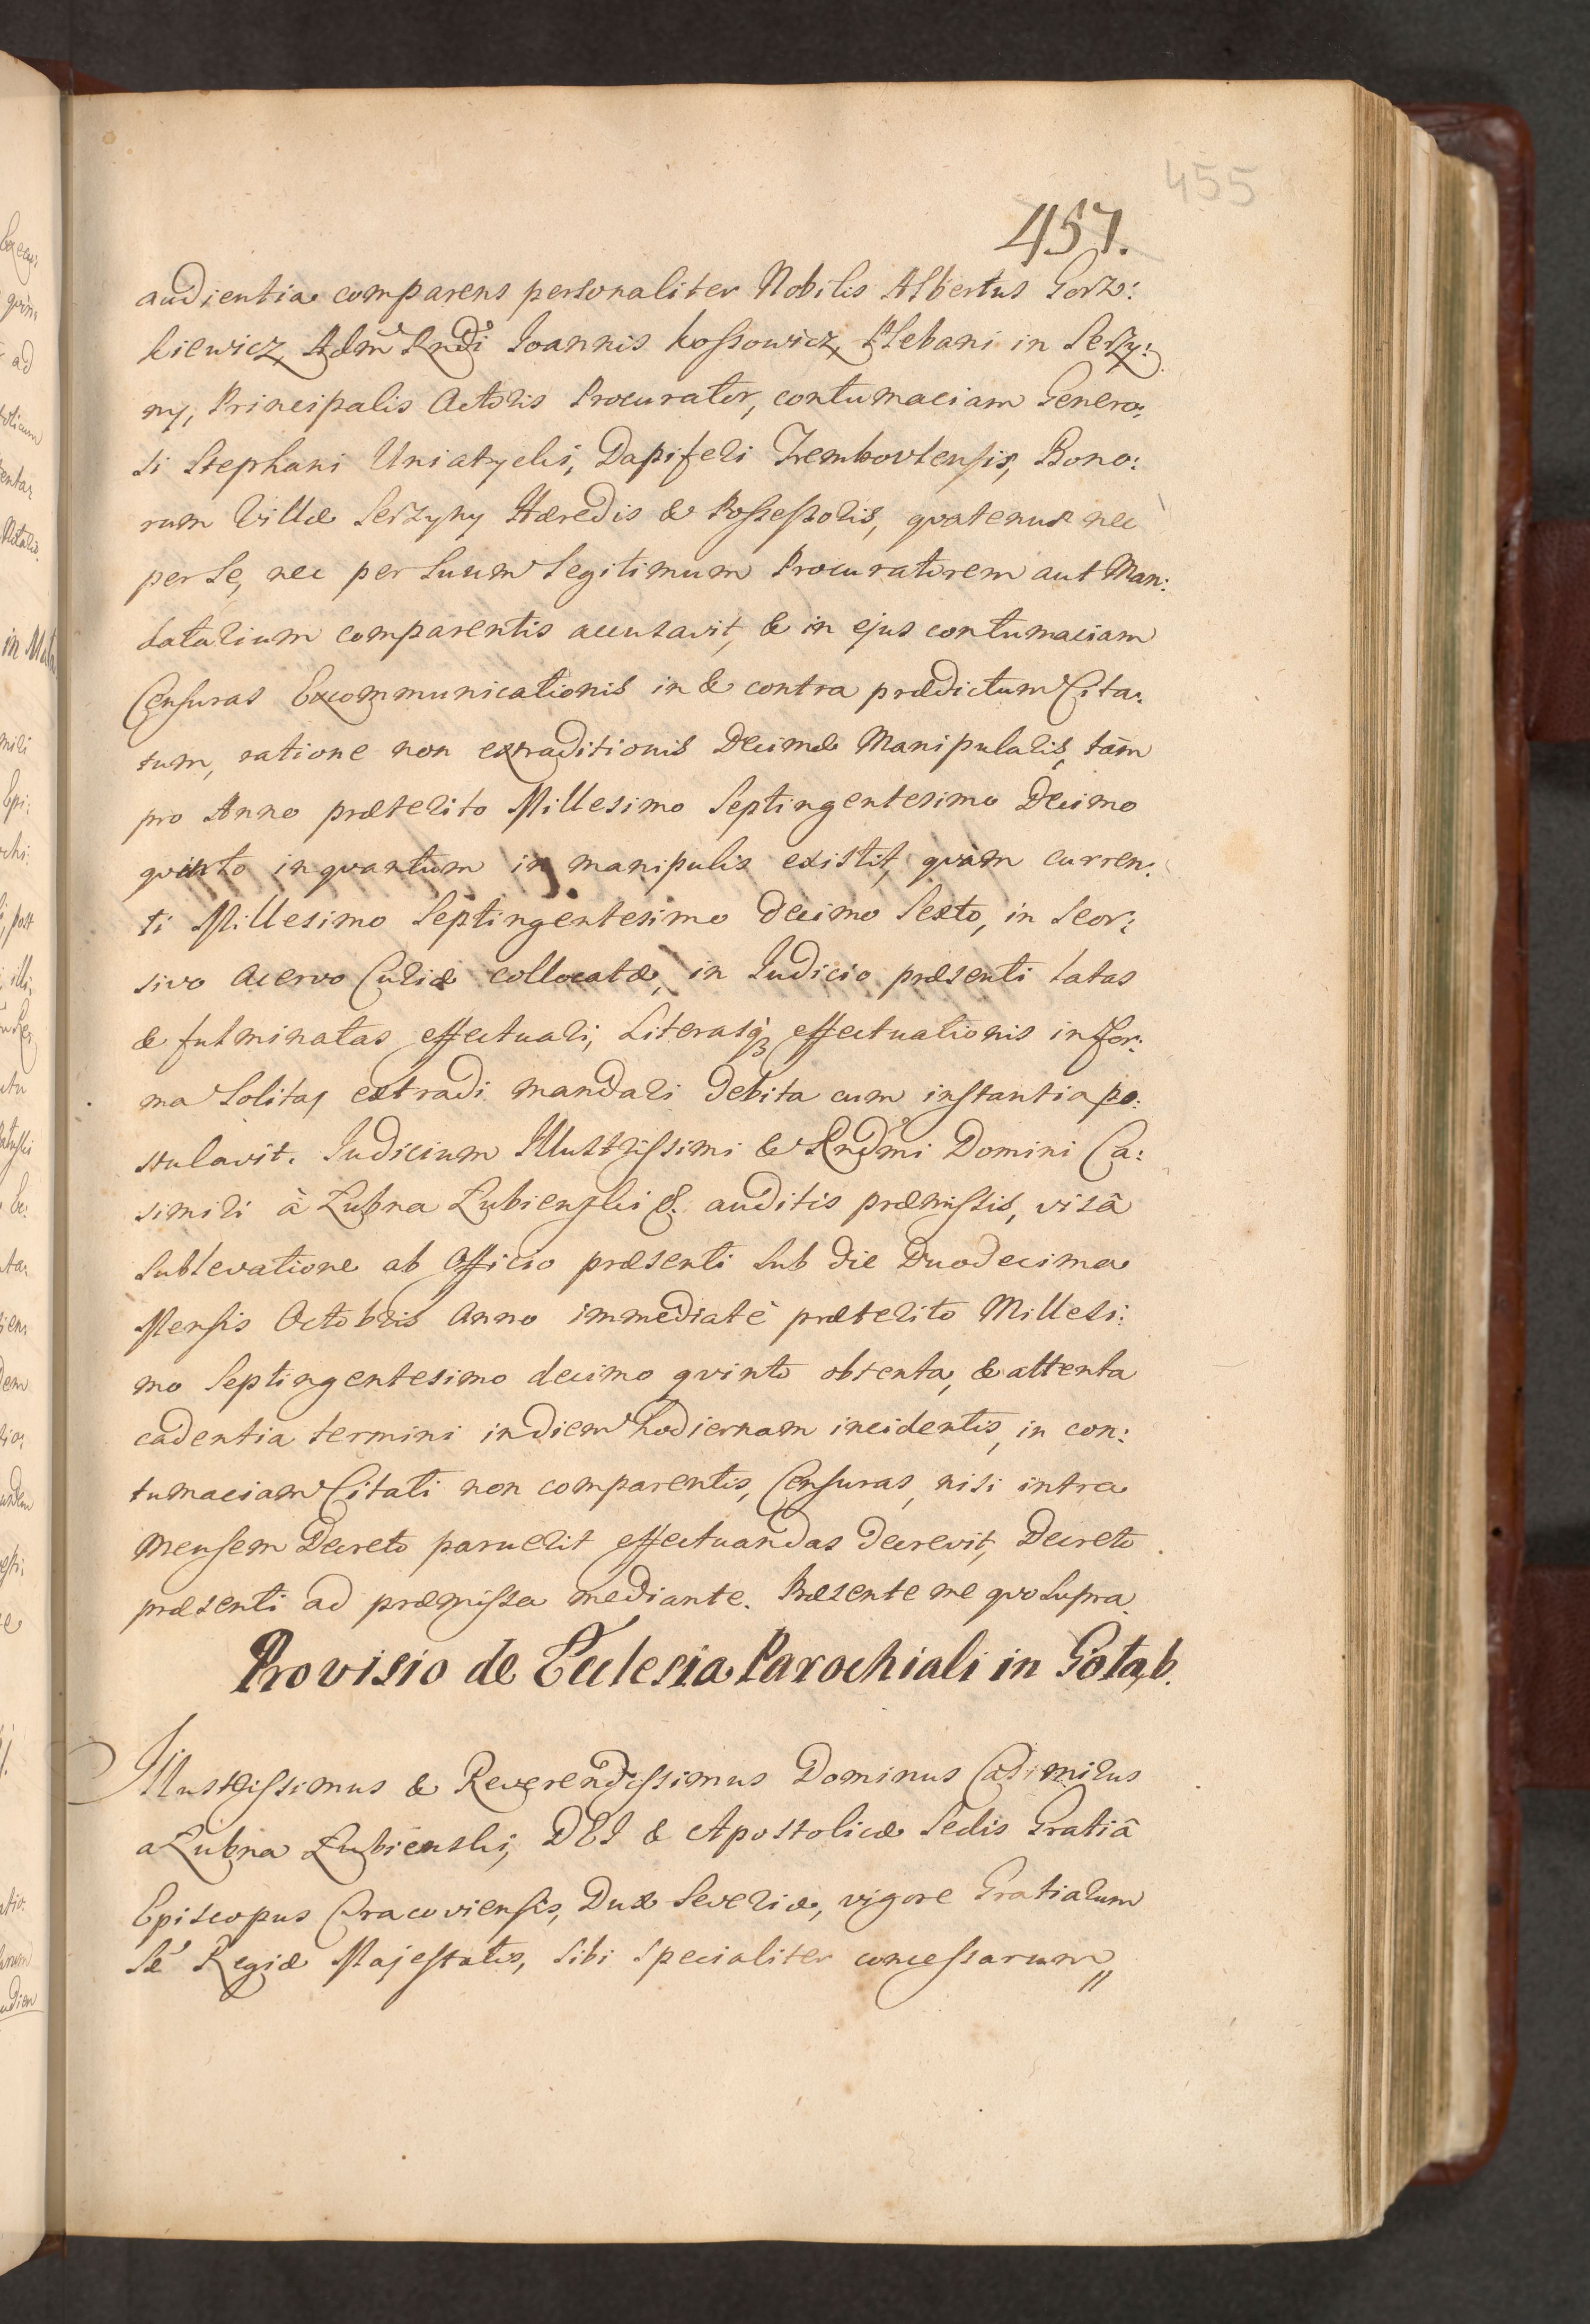 455
457.
audientia comparens personaliter Nobilis Albertus Gorz:
kiewicz, Adm̃ Rndi Joannis Kossowicz, Plebani in Serzy:
ny, Principalis Actoris Procurator, contumaciam Genero:
si Stephani Uniatycki, Dapiferi Trembovlensis, Bono:
rum Villæ Serzyny Hæredis & Possessoris, qvatenus nec
per se, nec per suum Legitimum Procuratorem aut Man:
datarium comparentis accusavit, & in ejus contumaciam
Censuras Excommunicationis in & contra prædictum Cita:
tum, ratione non extraditionis Decimæ Manipularis, tàm
pro Anno præterito Millesimo Septingentesimo Decimo
qvinto inqvantum in manipulis existit, qvàm curren:
ti Millesimo Septingentesimo Decimo Sexto, in seor:
sivo Acervo Curiæ collocatæ, in Judicio præsenti latas
& fulminatas effectuari, Literasq; effectuationis in for:
ma solita, extradi mandari debita cum instantia po:
stulavit. Judicium Illustrissimi & Rndmi Domini Ca:
simiri à Łubna Łubienski &. auditis præmissis, visâ
sublevatione ab Officio præsenti sub die Duodecima
Mensis Octobris Anno immediatè præterito Millesi:
mo Septingentesimo decimo qvinto obtenta, & attenta
cadentia termini in diem hodiernam incidentis, in con:
tumaciam Citati non comparentis, Censuras, nisi intra
Mensem Decreto paruerit effectuandas decrevit, Decreto
præsenti ad præmissa mediante. Præsente me qvo supra.
Provisio de Ecclesia Parochiali in Gołąb.
Illustrissimus & Reverendissimus Dominus Casimirus
a Łubna Łubienski, DEI & Apostolicæ Sedis Gratiâ
Episcopus Cracoviensis, Dux Severiæ, vigore Gratiarum
Sæ Regiæ Majestatis, sibi specialiter concessarum,,